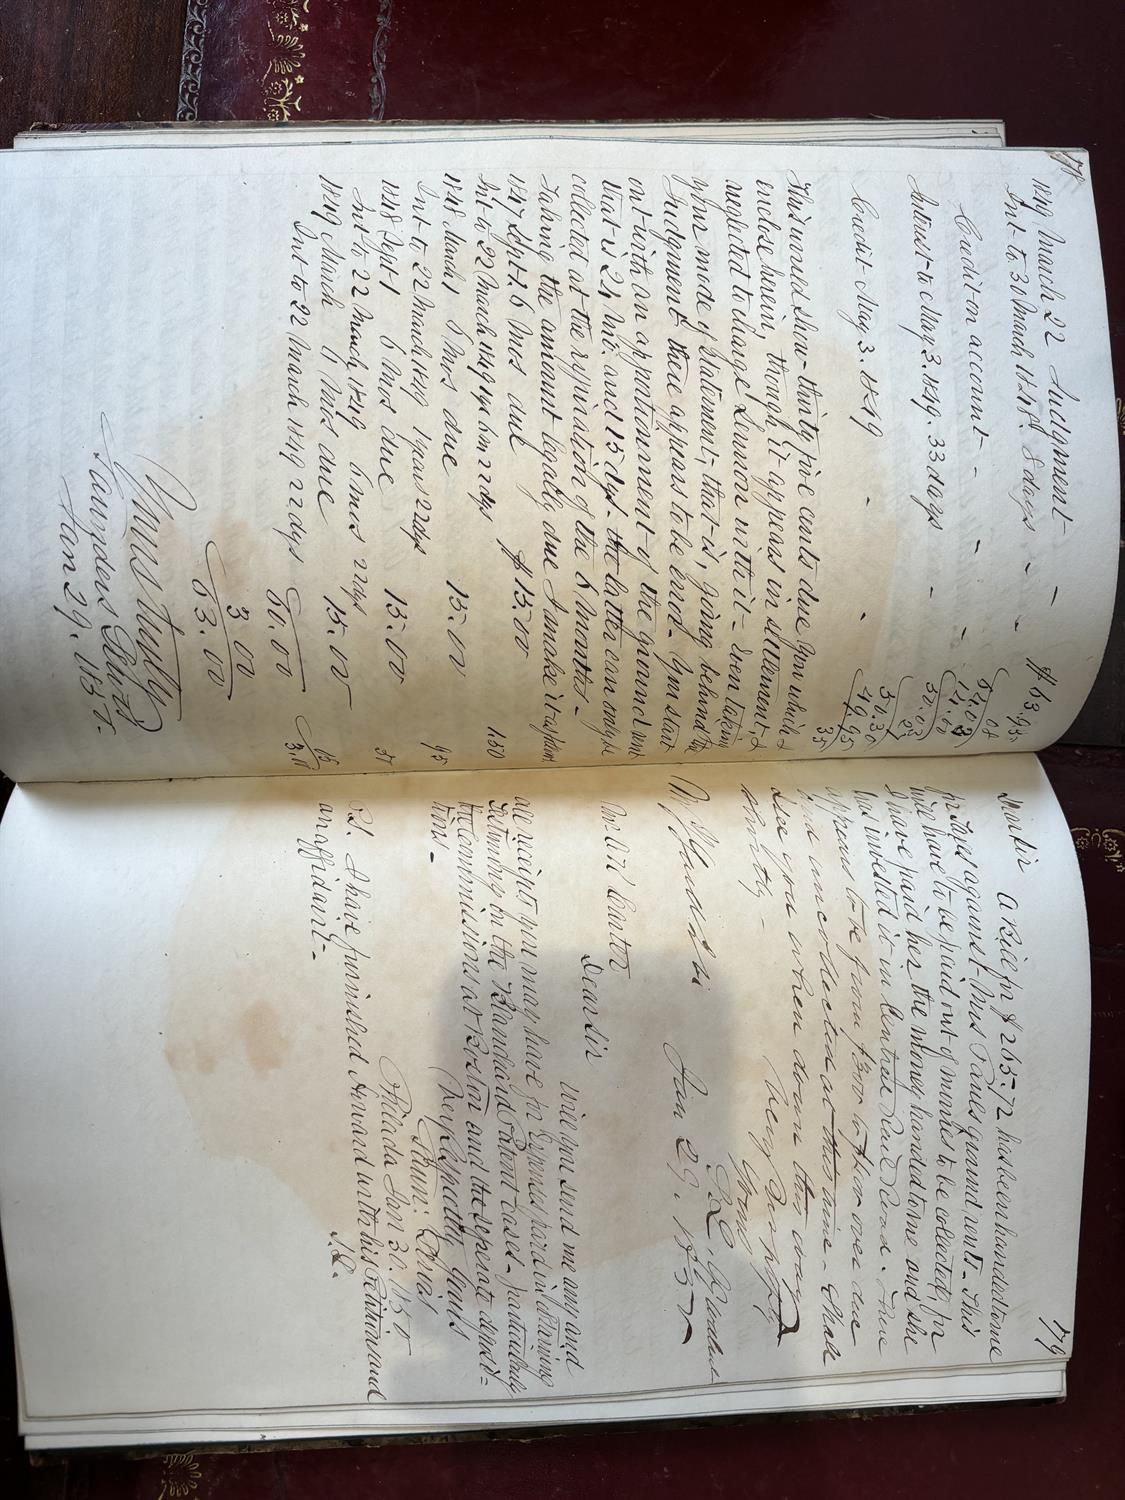 178
1849 March 22 Judgment - $63.95
Int to 30 March 1849. 8 days - 08
64.03
Credit on account - - 14.00
50.03
Interest to May 3. 1849. 33 days - 27
50.30
Credit May 3. 1849 - - 49.95
35
This would show thirty five cents due you which I
enclose herein, though it appears in settlement, I
neglected to charge Lennon with it - Even taking
your mode of statement, that is, going behind the
Judgment there appears to be error. You start
out with an apportionment of the ground rent
that is 24 mo. and 15 dys. the latter can only be
collected at the expiration of the 6 months -
Taking the amount legally due I make it as follows
1847 Sept. 6 mos due $15.00
Int to 22 March 1849 1 yr 6 m 22 dys 1.50
1848 March, 6 mos due 15.00
Int to 22 March 1849 1 year 22 dys 95
1848 Sept 6 mos due 15.00
Int to 22 March 1849 6 mos 22 dys
1849 March 6 mos due 15.00
Int to 22 March 1849 22 dys 05
60.00 3.00
3.00
63.00
Yours truly
Saunders Lewis
Jan 29. 1850.
179
Dear Sir A Bill for $265.72 has been handed to me
for Taxes against Mrs Pauls ground rents. This
will have to be paid out of monies to be collected, for
I have paid her the money handed to me and she
has invested it in Central Rail Road. There
appears to be from $300 to $400 over due
and uncollected at this time - Shall
see you when down this way
shortly -
Very Truly
Yours
Jan 29. 1850
Dear Sir
will you send me any and
all receipts you may have for Expenses paid in obtaining
testimony in the Blanchard Patent cases - particularly
the Commissions at Boston and the separate deposi-
tions -
Very Respectfy Yours
Philada Jan 30. 1850
P.S. I have furnished Howard with his Petition and
an affidavit -